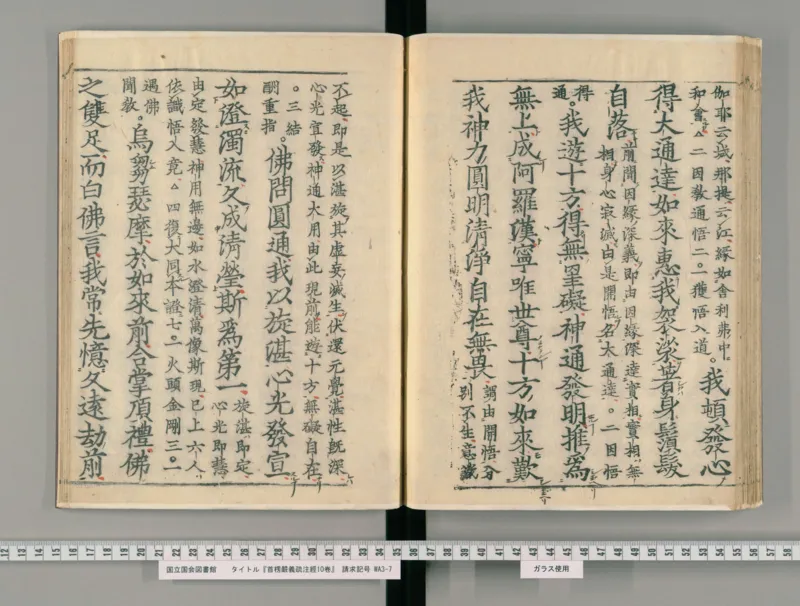 伽耶云城那提云江緣如舍利弗中
和會△二因教通悟二○一獲悟入道○我頓發心
得大通達如來惠我袈裟著身鬚髮
自落前聞因緣深義即由因緣深達實相實相無
相身心寂滅由是開悟名大通達○二因悟
得通○我遊十方得無罣礙神通發明推為
無上成阿羅漢寧唯世尊十方如來歎
我神力圓明清淨自在無畏弼由開悟分
別不生意識
不起即是以湛旋其虛妄滅生伏還元覺湛性既深
心光宣發神通大用由此現前能遊十方無礙自在
○三結
酬重指○佛問圓通我以旋湛心光發宣
如澄濁流久成清瑩斯為第一旋湛即定
心光即慧
由定發慧神用無邊如水澄清萬像斯現已上六人
依識悟入竟△四復大同本證七○一火頭金剛三○一
遇佛
聞教○烏芻瑟摩於如來前合掌頂禮佛
之雙足而白佛言我常先憶久遠劫前
12 13 14 15 16 17 18 19 20 21 22 23 24 25 26 27 28 29 30 31 32 33 34 35 36 37 38 39 40 41 42 43 44 45 46 47 48 49 50 51 52 53 54 55 56 57 58
国立国会図書館 タイトル『首楞嚴義疏注經10巻』 請求記号 WA3-7
ガラス使用